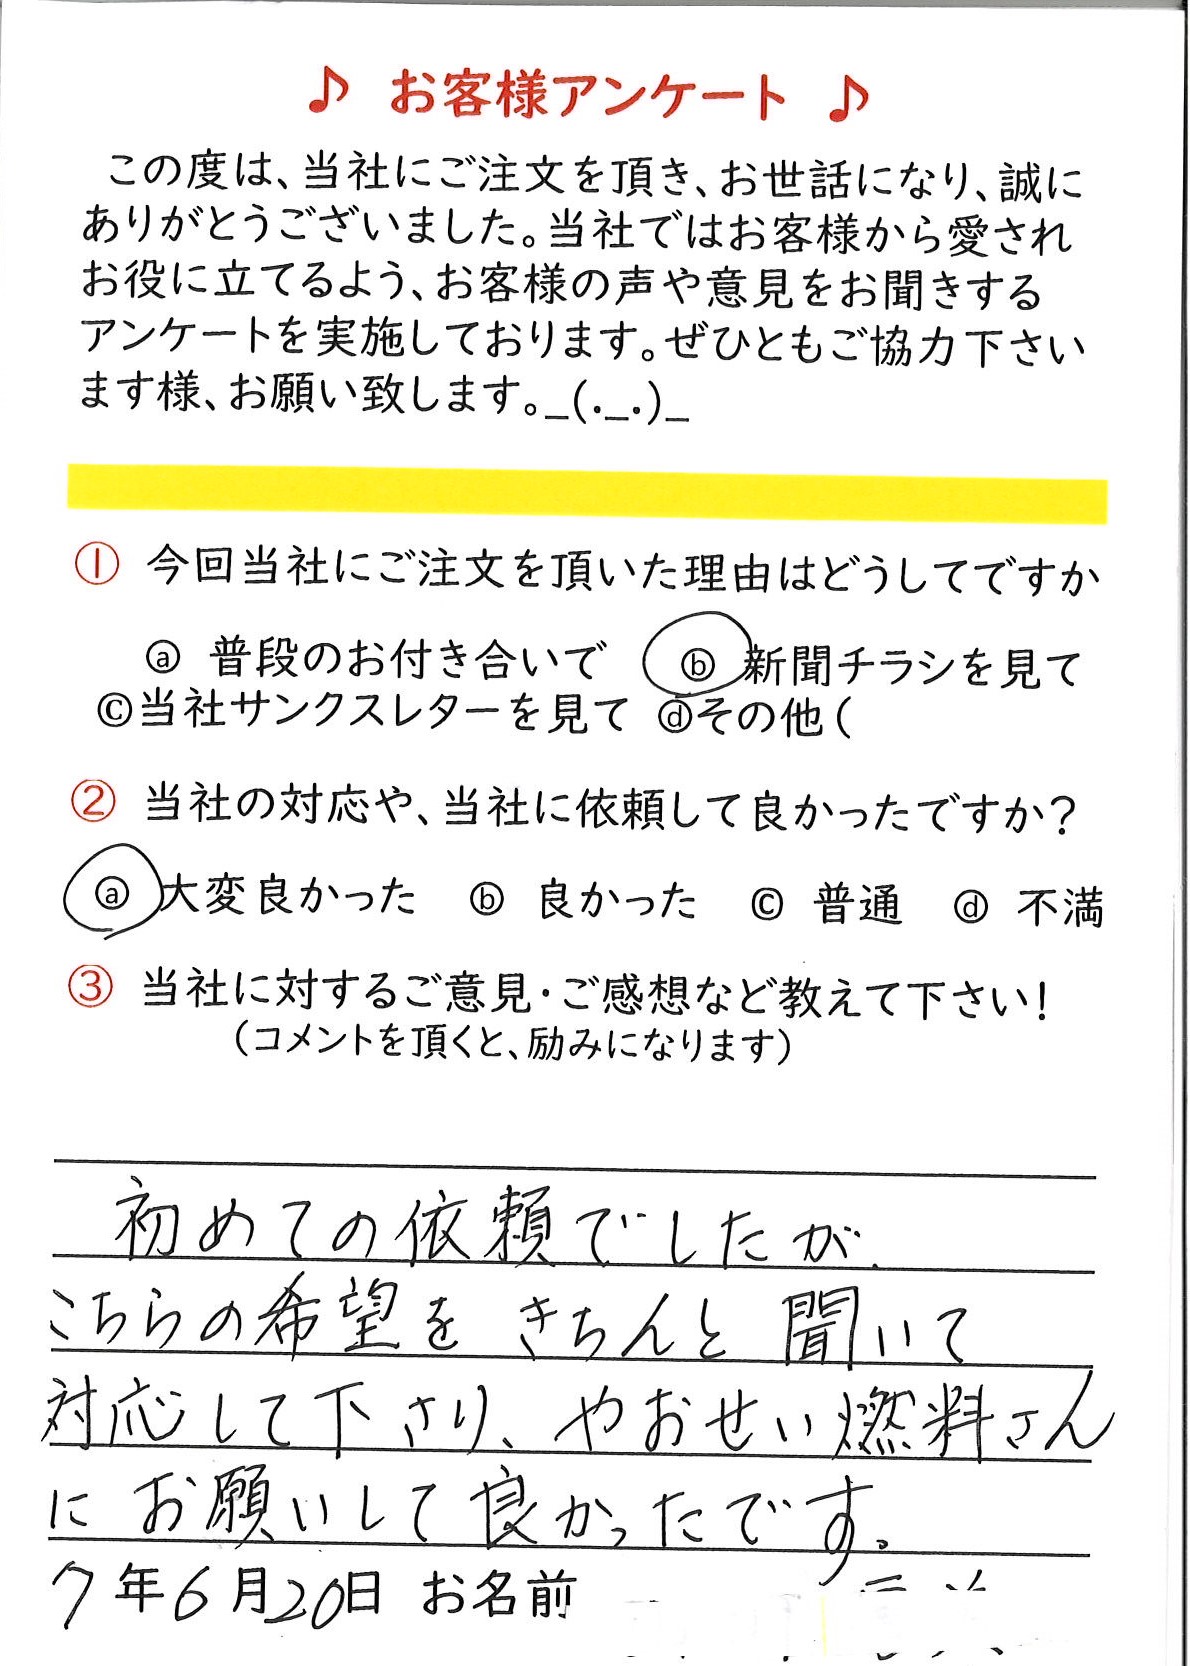 ♪ お客様アンケート ♪
この度は、当社にご注文を頂き、お世話になり、誠に
ありがとうございました。当社ではお客様から愛され
お役に立てるよう、お客様の声や意見をお聞きする
アンケートを実施しております。ぜひともご協力下さい
ます様、お願い致します。_(._.)_
① 今回当社にご注文を頂いた理由はどうしてですか
ⓐ 普段のお付き合いで ⓑ 新聞チラシを見て
©当社サンクスレターを見て ⓓその他(
② 当社の対応や、当社に依頼して良かったですか?
ⓐ 大変良かった ⓑ 良かった © 普通 ⓓ 不満
③ 当社に対するご意見・ご感想など教えて下さい!
(コメントを頂くと、励みになります)
初めての依頼でしたが、
こちらの希望を きちんと 聞いて
対応して下さり、やおせい燃料さん
に お願いして良かったです。
7年6月20日 お名前